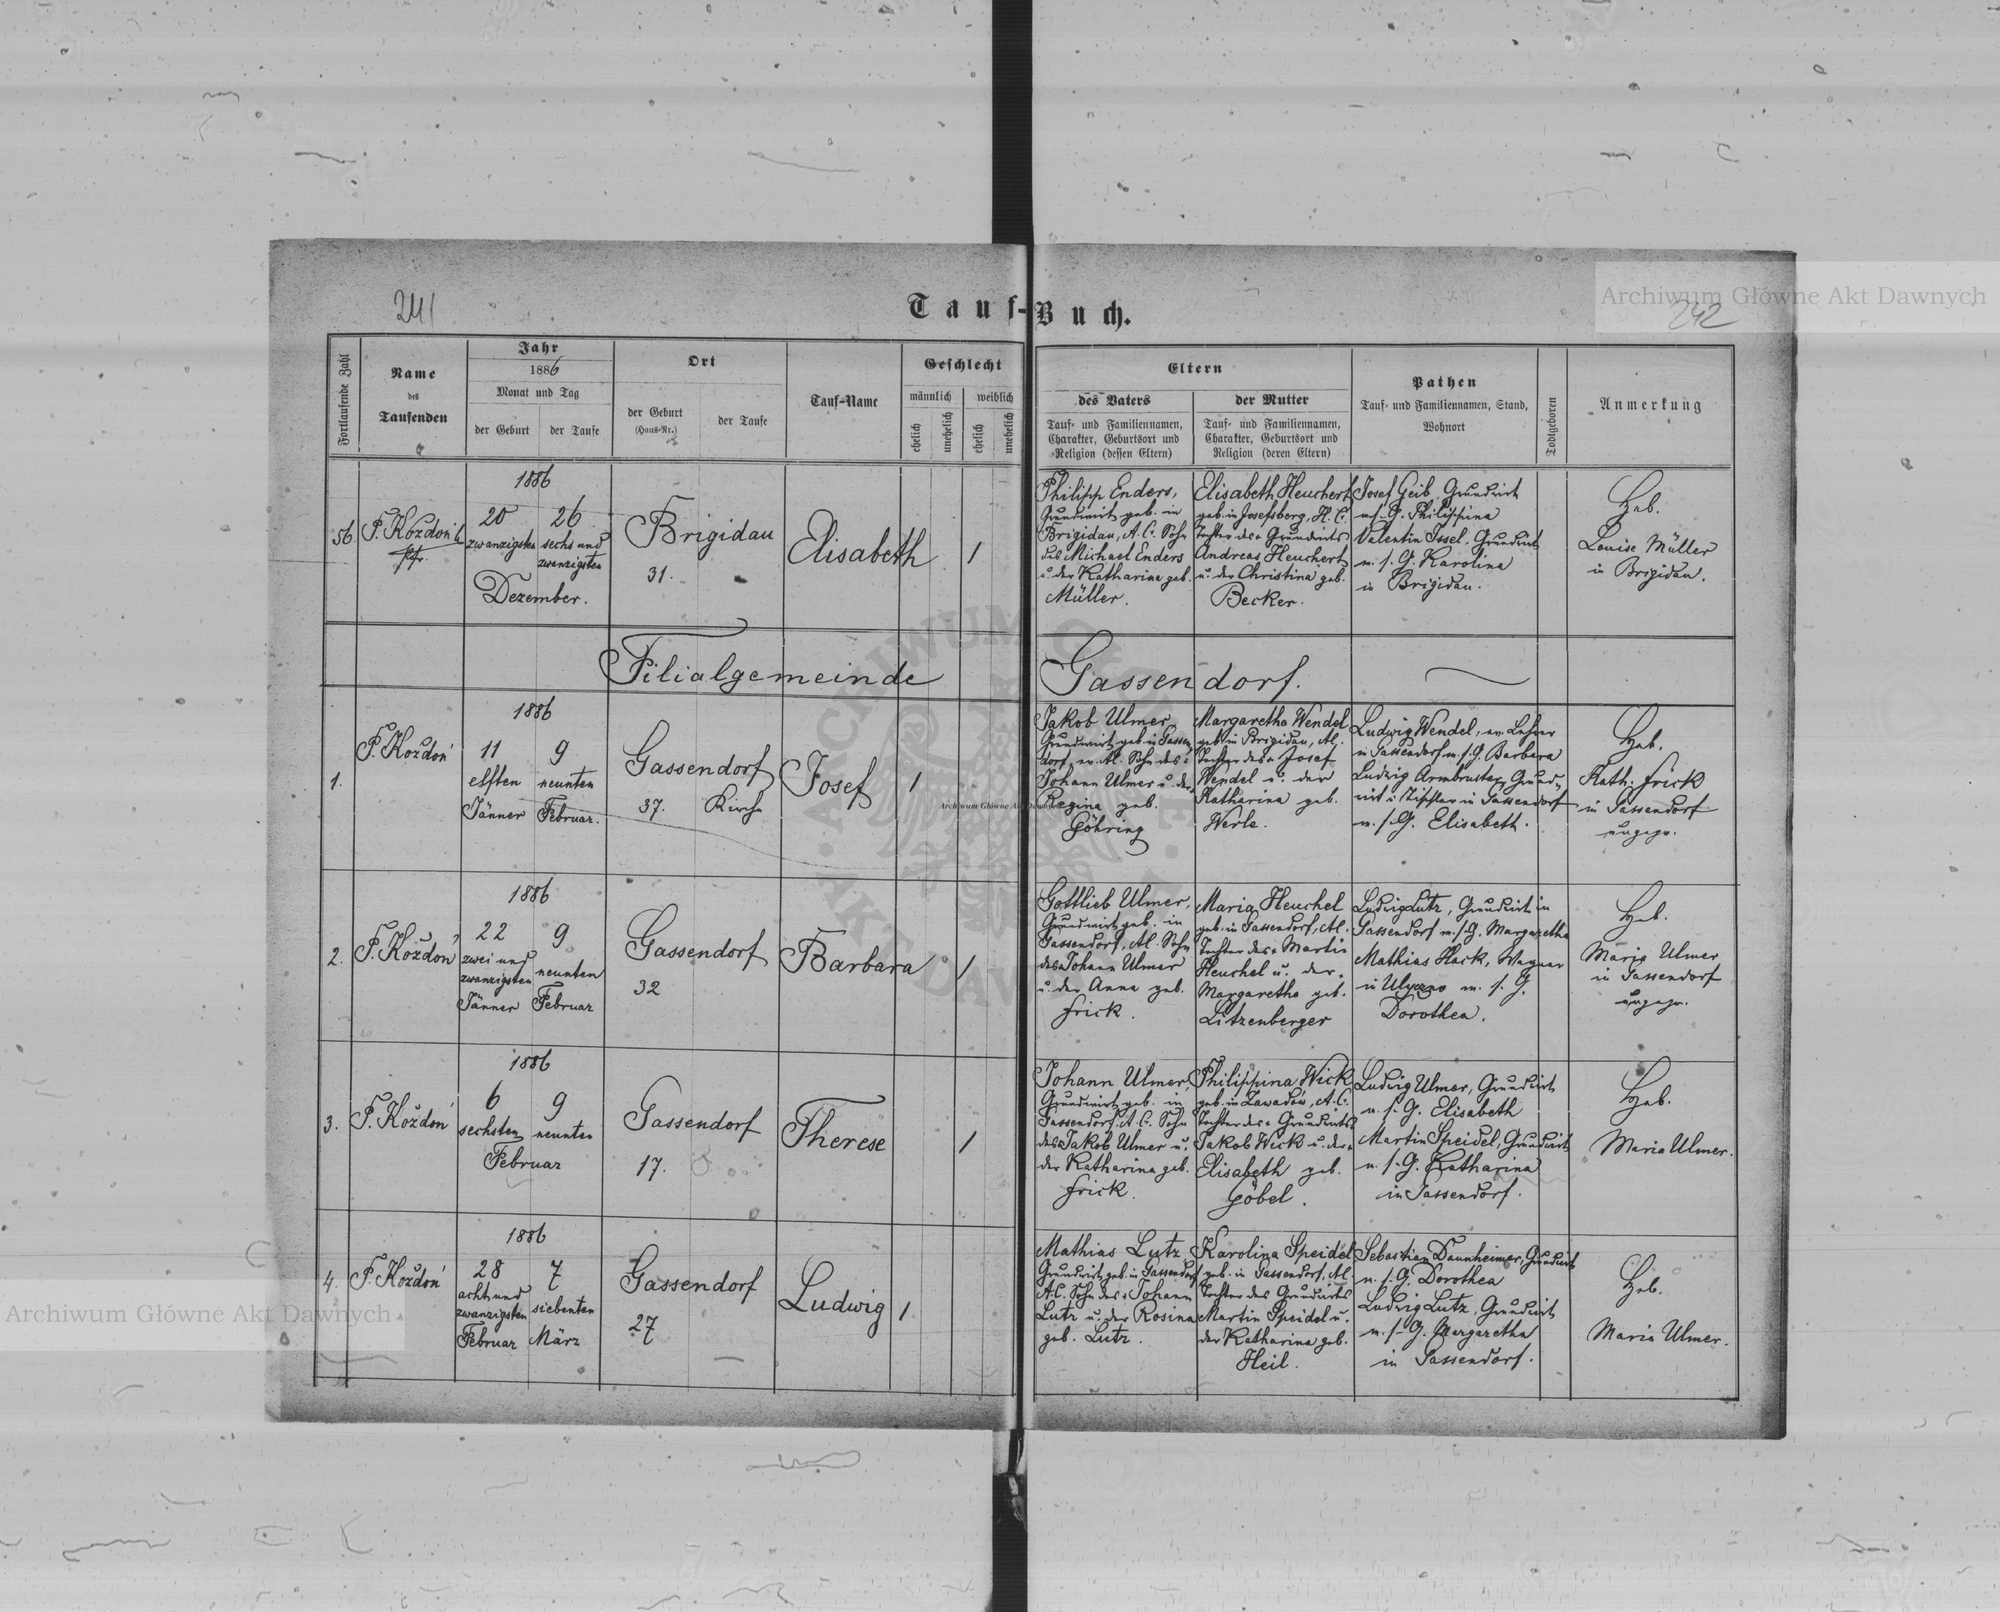 241
Tauf-Buch.
242
Archiwum Główne Akt Dawnych
Fortlaufende Zahl
Name
des
Taufenden
Jahr
1886
Monat und Tag
der Geburt
der Taufe
Ort
der Geburt
(Haus-Nr.)
der Taufe
Tauf-Name
Geschlecht
männlich
weiblich
ehelich
unehelich
ehelich
unehelich
Eltern
des Vaters
Tauf- und Familiennamen,
Charakter, Geburtsort und
Religion (dessen Eltern)
der Mutter
Tauf- und Familiennamen,
Charakter, Geburtsort und
Religion (deren Eltern)
Pathen
Tauf- und Familiennamen, Stand,
Wohnort
Todtgeboren
Anmerkung
56
F. Koždoń
pfr.
1886
20
zwanzigsten
26
sechs und
zwanzigsten
Dezember.
Brigidau
31.
Elisabeth
1
Philipp Enders,
Grundwirt geb. in
Brigidau, A. C. Sohn
des Michael Enders
u. der Katharina geb.
Müller.
Elisabeth Heuchert
geb. in Josefsberg, H. C.
Tochter des Grundwirts
Andreas Heuchert
u. der Christina geb.
Becker.
Josef Geib, Grundwirt
m. s. G. Philippina
Valentin Josel, Grundwirt
m. s. G. Karolina
in Brigidau.
Heb.
Louise Müller
in Brigidau.
Filialgemeinde Gassendorf.
1.
F. Koždoń
1886
11
elften
Jänner
9
neunten
Februar.
Gassendorf
37.
Kirche
Josef
1
Jakob Ulmer
Grundwirt geb. in Gassen
dorf, ev. Al. Sohn des
Johann Ulmer u. der
Regina geb.
Göhring
Margaretha Wendel
geb. in Brigidau, Al.
Tochter des Josef
Wendel u. der
Katharina geb.
Werle.
Ludwig Wendel, ev. Lehrer
in Gassendorf m. s. G. Barbara
Ludwig Armbruster, Grund-
wirt u. Tischler in Gassendorf
m. s. G. Elisabeth.
Heb.
Kath. Frick
in Gassendorf
ungepr.
2.
F. Koždoń
1886
22
zwei und
zwanzigsten
Jänner
9
neunten
Februar
Gassendorf
32
Barbara
1
Gottlieb Ulmer,
Grundwirt geb. in
Gassendorf, Al. Sohn
des Johann Ulmer
u. der Anna geb.
Frick.
Maria Heuchel
geb. in Gassendorf, Al.
Tochter des Martin
Heuchel u. der
Margaretha geb.
Litzenberger
Ludwig Lutz, Grundwirt in
Gassendorf m. s. G. Margaretha
Mathias Hack, Wagner
in Ulyczno m. s. G.
Dorothea.
Heb.
Maria Ulmer
in Gassendorf
ungepr.
3.
F. Koždoń
1886
6
sechsten
9
neunten
Februar
Gassendorf
17.
Therese
1
Johann Ulmer,
Grundwirt geb. in
Gassendorf, A. C. Sohn
des Jakob Ulmer u.
der Katharina geb.
Frick.
Philippina Wick
geb. in Zawadow, A. C.
Tochter des Grundwirts
Jakob Wick u. der
Elisabeth geb.
Göbel.
Ludwig Ulmer, Grundwirt
m. s. G. Elisabeth
Martin Speidel, Grundwirt
m. s. G. Katharina
in Gassendorf.
Heb.
Maria Ulmer.
4.
F. Koždoń
1886
28
acht und
zwanzigsten
Februar
7
siebenten
März
Gassendorf
27
Ludwig
1
Mathias Lutz
Grundwirt geb. in Gassendorf
A. C. Sohn des Johann
Lutz u. der Rosina
geb. Lutz.
Karolina Speidel
geb. in Gassendorf, Al.
Tochter des Grundwirts
Martin Speidel u.
der Katharina geb.
Heil.
Sebastian Daunheimer, Grundwirt
m. s. G. Dorothea
Ludwig Lutz, Grundwirt
m. s. G. Margaretha
in Gassendorf.
Heb.
Maria Ulmer.
Archiwum Główne Akt Dawnych